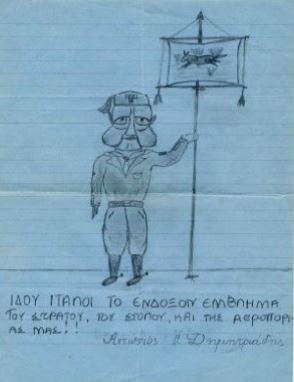 ΙΔΟΥ ΙΤΑΛΟΙ ΤΟ ΕΝΔΟΞΟΥ ΕΜΒΛΗΜΑ
ΤΟΥ ΣΤΡΑΤΟΥ, ΤΟΥ ΣΤΟΛΟΥ, ΚΑΙ ΤΗΣ ΑΕΡΟΠΟΡΙ
ΑΣ ΜΑΣ!!
Δημητριάδης